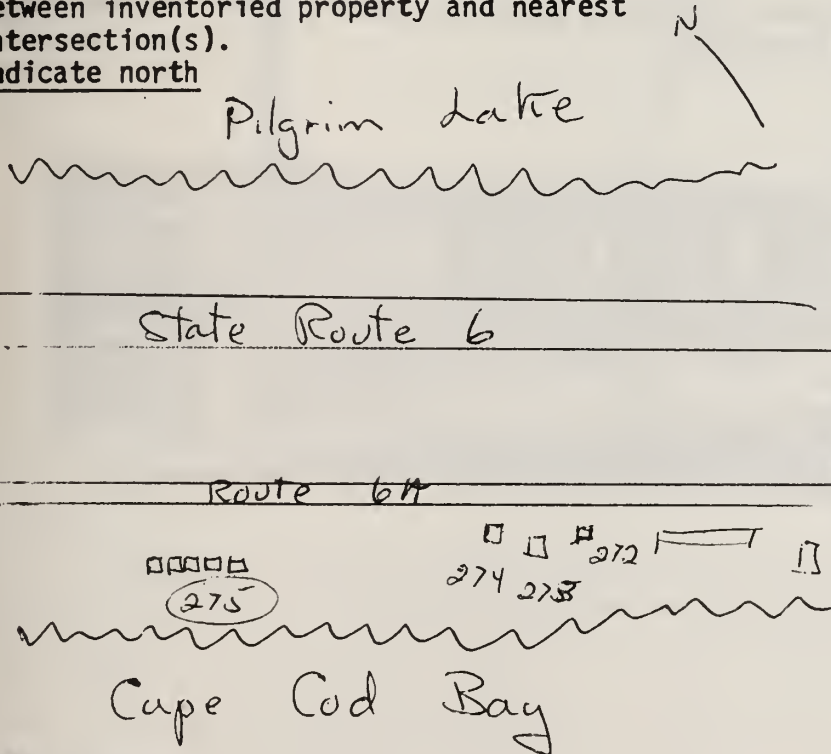 etween inventoried property and nearest
ntersection(s).
ndicate north
N
Pilgrim Lake
State Route 6
Route 6A
272
274 273
275
Cape Cod Bay